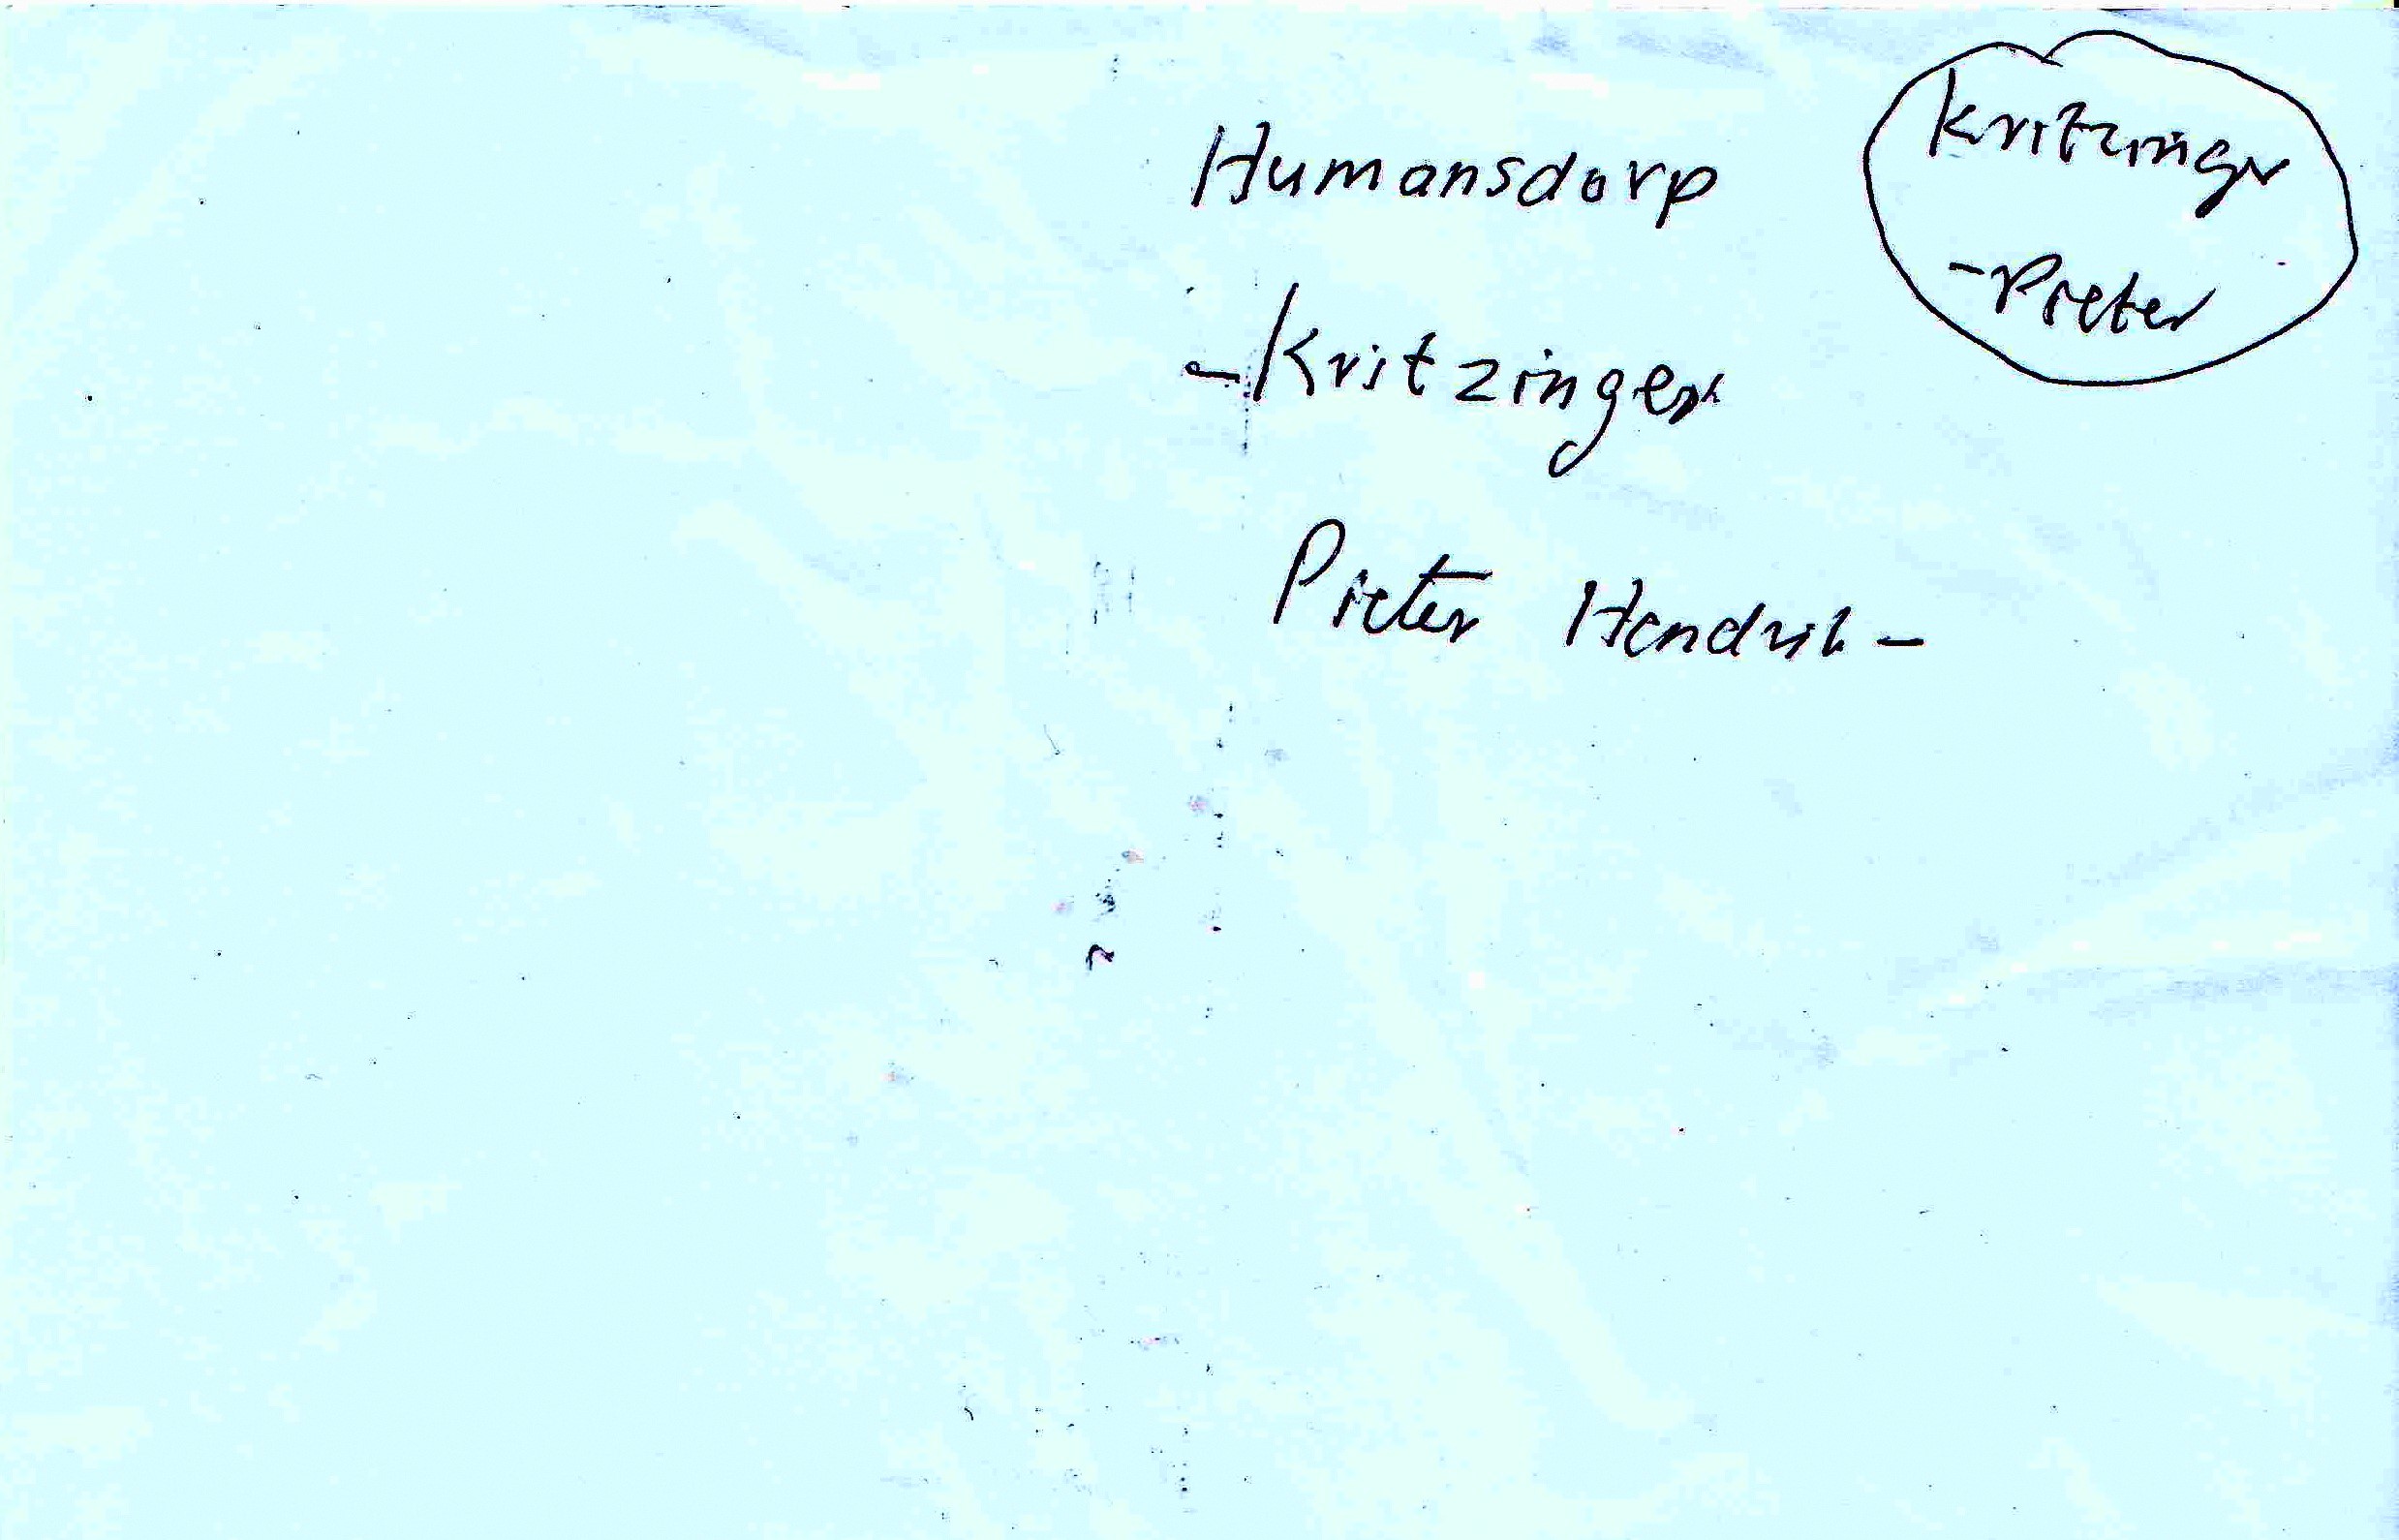 Humansdorp
- Kritzinger
Pieter Hendrik -
Kritzinger
- Pieter